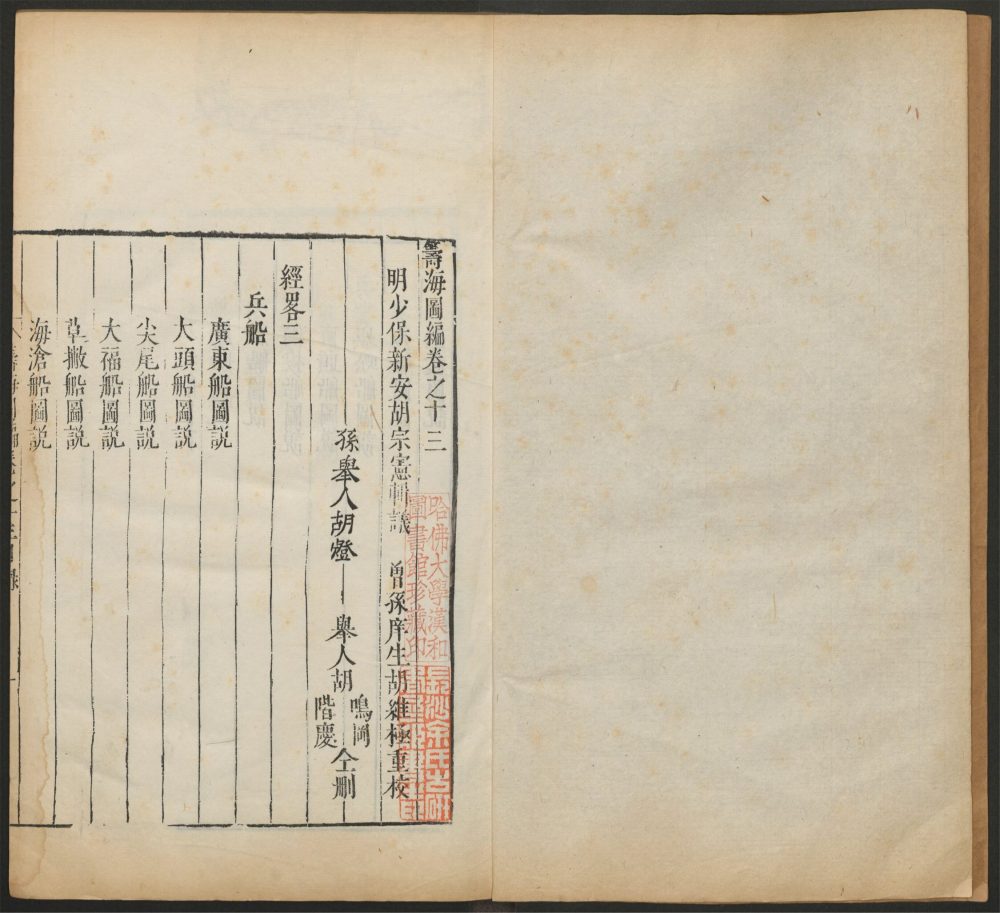 籌海圖編卷之十三
明少保新安胡宗憲輯議 曾孫庠生胡維極重校
孫舉人胡燈 舉人胡鳴岡階慶仝刪
經畧三
兵船
廣東船圖説
大頭船圖説
尖尾船圖説
大福船圖説
草撇船圖説
海滄船圖説
哈佛大學漢和
圖書館珍藏印